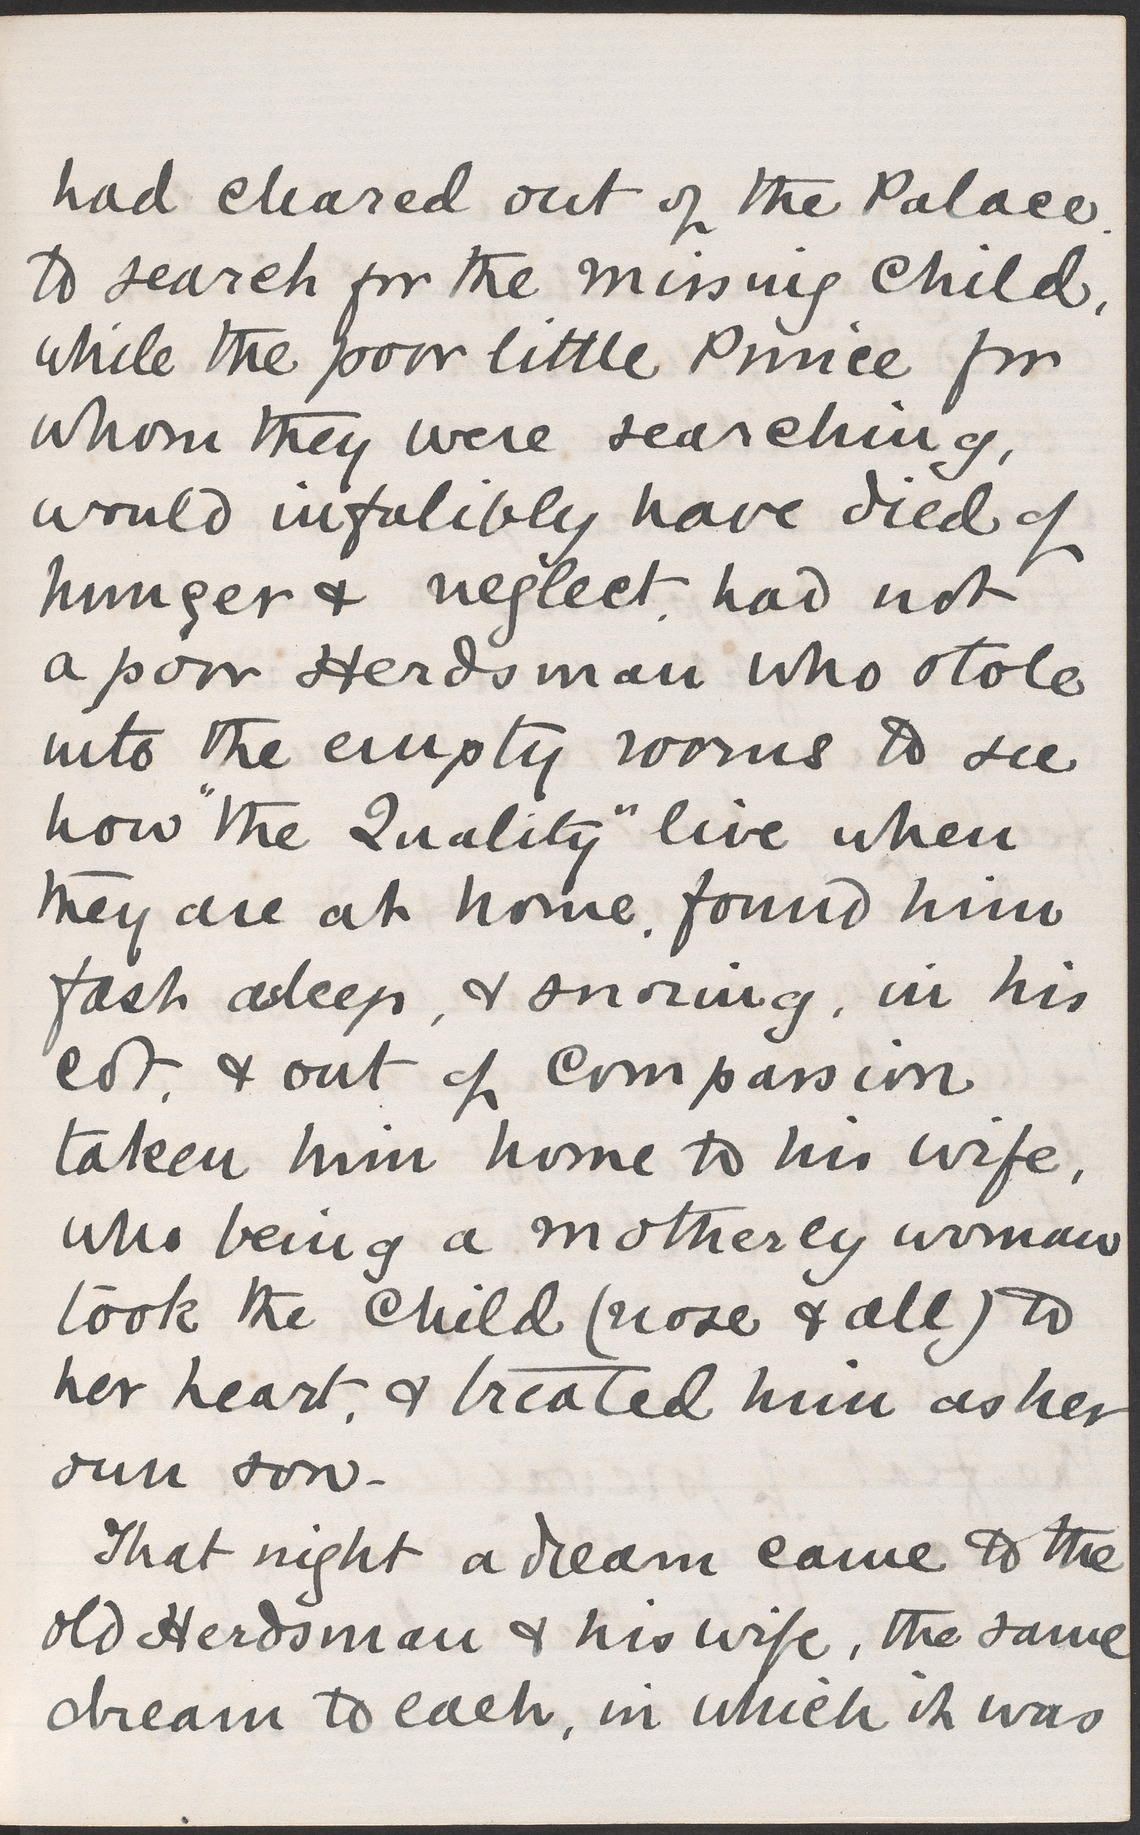 had cleared out of the Palace.
to search for the missing Child,
while the poor little Prince for
whom they were searching,
would infalibly have died of
hunger & neglect, had not
a poor Herdsman who stole
into the empty rooms to see
how "the Quality" live when
they are at home, found him
fast asleep, & snoring, in his
cot, & out of Compassion
taken him home to his wife,
who being a motherly woman
took the Child (nose & all) to
her heart, & treated him as her
own son-
That night a dream came to the
old Herdsman & his wife, the same
dream to each, in which it was